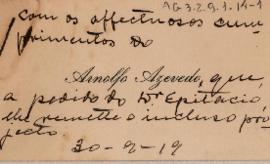 AG3.2.9.1.14-1
com os affectuosos cum
primentos do
Arnolfo Azevedo, que,
a pedido do Dr Epitacio,
lhe remette o incluso pro
jecto
30-9-19